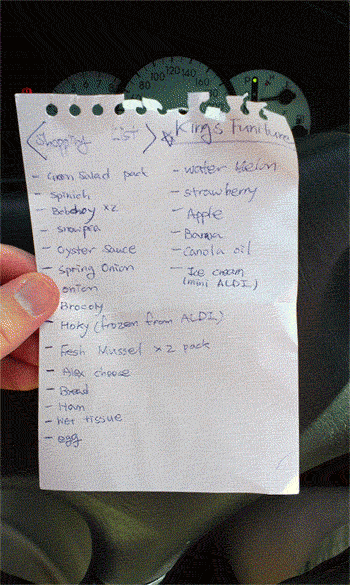 <Shopping List>
☆ Kings Funiture
- Green Salad pack
- Spinich
- Bokchoy x2
- snowpea
- Oyster Sauce
- Spring Onion
- onion
- Brocoly
- Hoky (frozen from ALDI)
- Fesh Mussel x 2 pack
- Alex cheese
- Bread
- Ham
- Wet tissue
- egg
- water Melon
- strawberry
- Apple
- Banana
- Canola oil
- Ice cream
(mini ALDI)